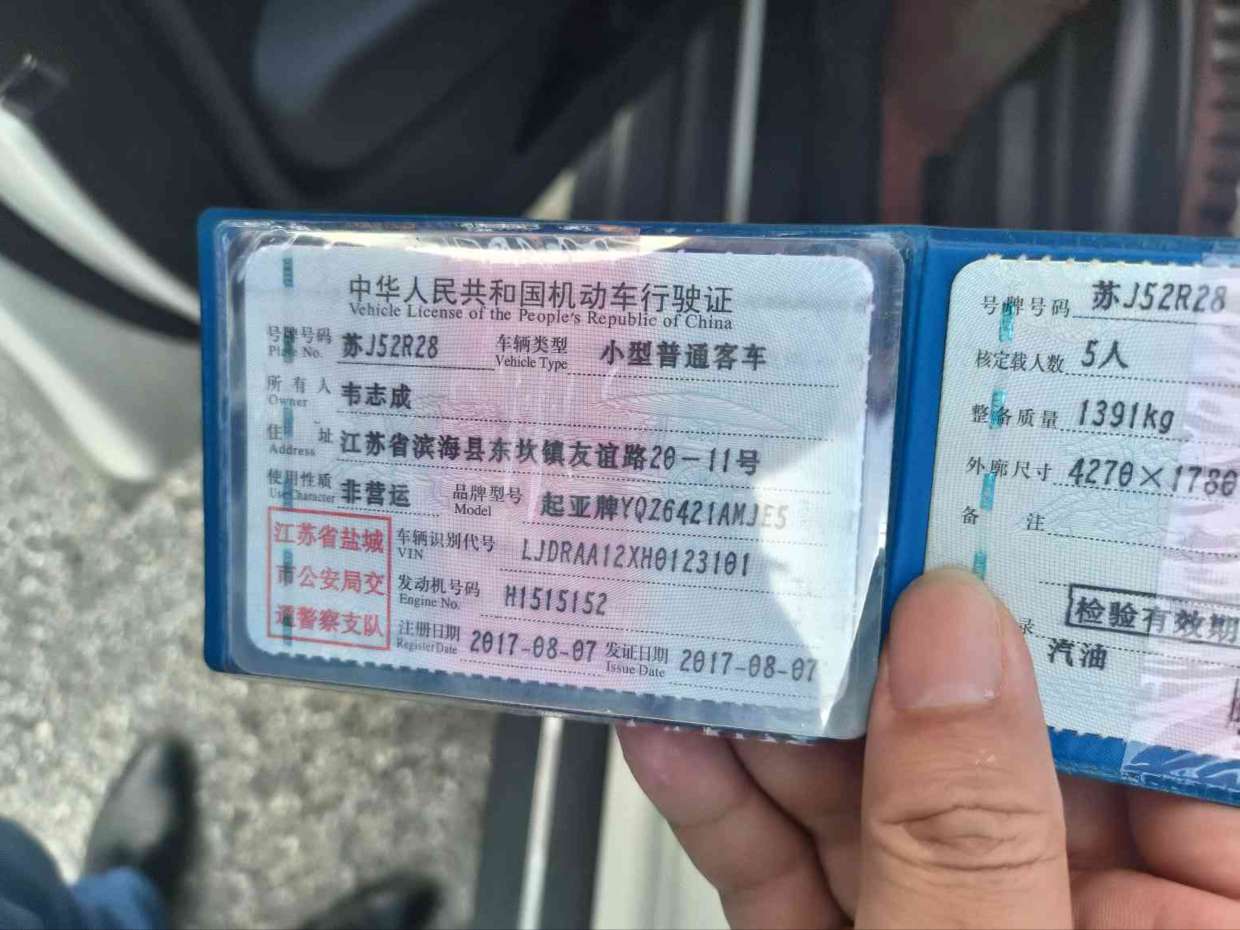 中华人民共和国机动车行驶证
Vehicle License of the People's Republic of China
号牌号码 苏J52R28 车辆类型 小型普通客车
Plate No. Vehicle Type
所有人 韦志成
Owner
住址 江苏省滨海县东坎镇友谊路20-11号
Address
使用性质 非营运 品牌型号 起亚牌YQZ6421AMJE5
Use Character Model
江苏省盐城
市公安局交
通警察支队
车辆识别代号 LJDRAA12XH0123101
VIN
发动机号码 H1515152
Engine No.
注册日期 2017-08-07 发证日期 2017-08-07
Register Date Issue Date
号牌号码 苏J52R28
核定载人数 5人
整备质量 1391kg
外廓尺寸 4270×1780
备注
检验有效期
录 汽油